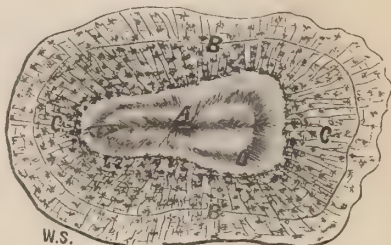 B
C A C
B
W.S.